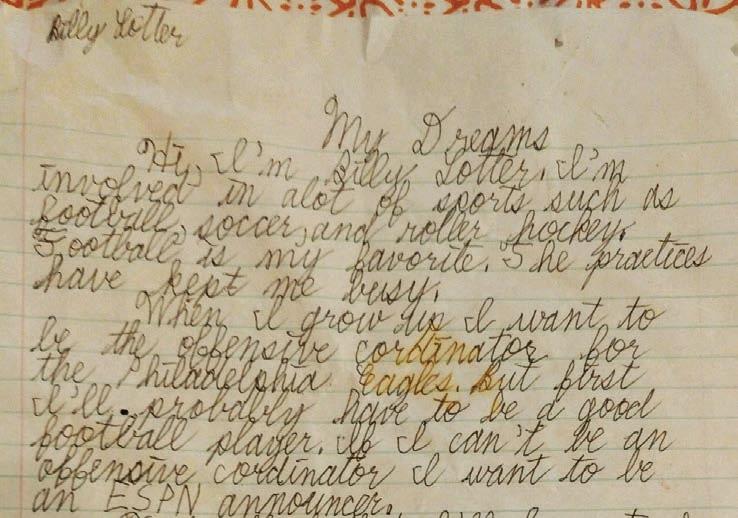 Billy Lotter
My Dreams
Hi, I'm Billy Lotter. I'm
involved in alot of sports such as
football, soccer, and roller hockey.
Football is my favorite. The practices
have kept me busy.
When I grow up I want to
be the offensive cordinator for
the Philadelphia Eagles. But first
I'll probably have to be a good
football player. If I can't be an
offensive cordinator I want to be
an ESPN announcer.